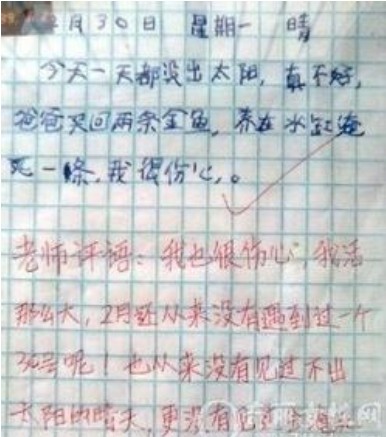 2月30日 星期一 晴
今天一天都没出太阳，真不好，
爸爸买回两条金鱼，养在水缸淹
死一條，我很伤心，。
老师评语：我也很伤心，我活
那么大，2月还从来没有遇到过一个
30号呢！也从来没有见过不出
太阳的晴天，更没有见过